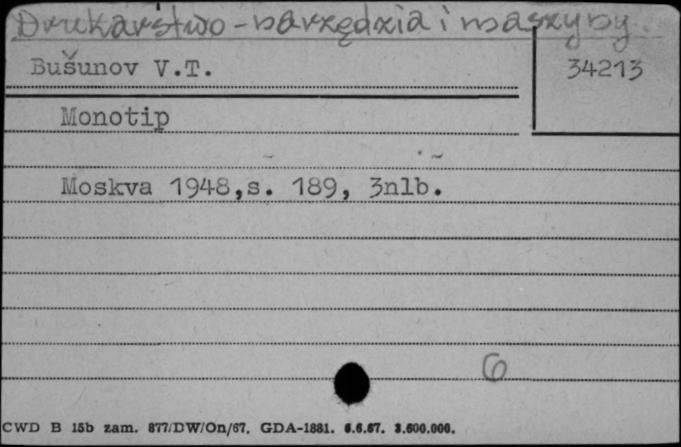 Drukarstwo - narzędzia i maszyny.
Bušunov V.T.
34213
Monotip
Moskva 1948,s. 189, 3nlb.
6
CWD B 15b zam. 877/DW/On/67. GDA-1881. 6.6.67. 3.600.000.